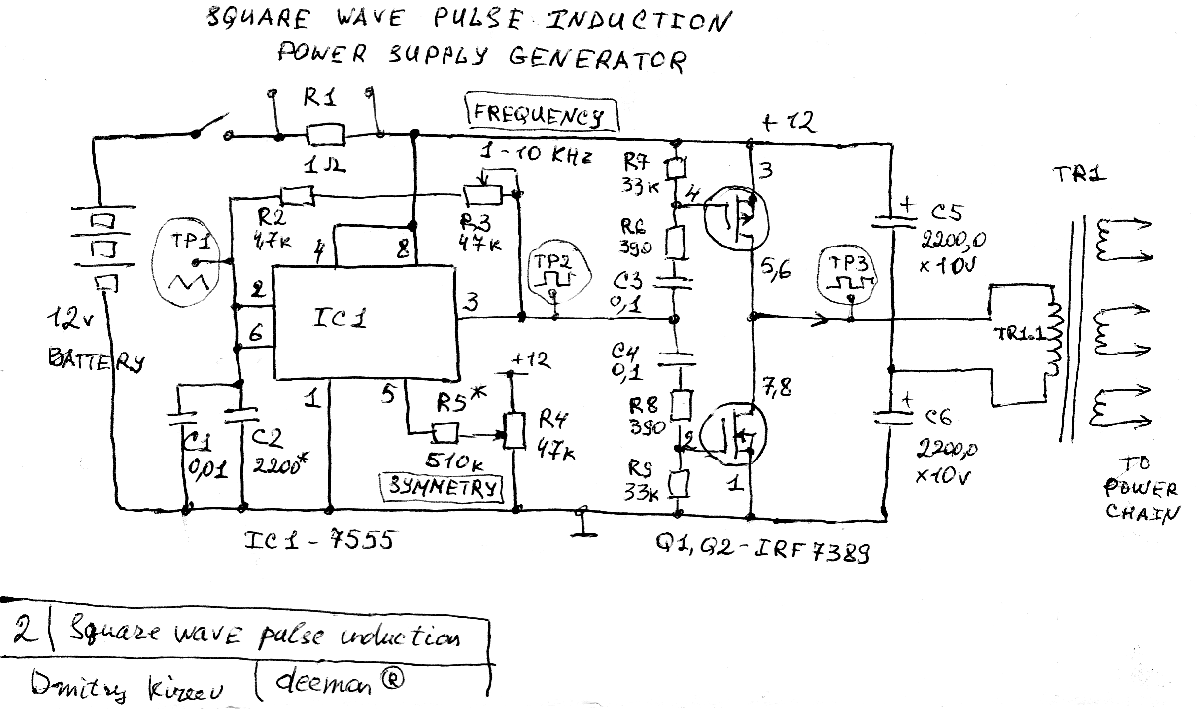 SQUARE WAVE PULSE INDUCTION
POWER SUPPLY GENERATOR
R1
1Ω
FREQUENCY
1-10 KHz
+12
TR1
R2
47K
R3
47K
TP1
12v
BATTERY
4
8
2
6
IC1
3
1
5
TP2
R7
33K
4
3
R6
390
C3
0,1
5,6
TP3
C5
+
2200,0
x10V
TR1.1
C4
0,1
7,8
R8
390
2
R9
33K
1
C6
+
2200,0
x10V
+12
R5*
510K
R4
47K
SYMMETRY
C1
0,01
C2
2200*
TO
POWER
CHAIN
IC1-7555
Q1,Q2-IRF7389
2 Square wave pulse induction
Dmitry Kireev deeman ®